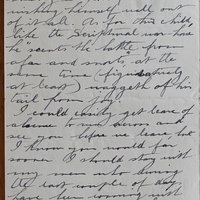 himself well out
of it all. As for this child,
like the Scriptural war hoss
he scents the battle from
afar and snorts, at the
same time (figuratively
at least) waggeth of his
tail from joy.
I could easily get leave of
absence to run down and
see you before we leave but
I know you would far
sooner I should stay with
my men who during
the last couple of days
have been coming with